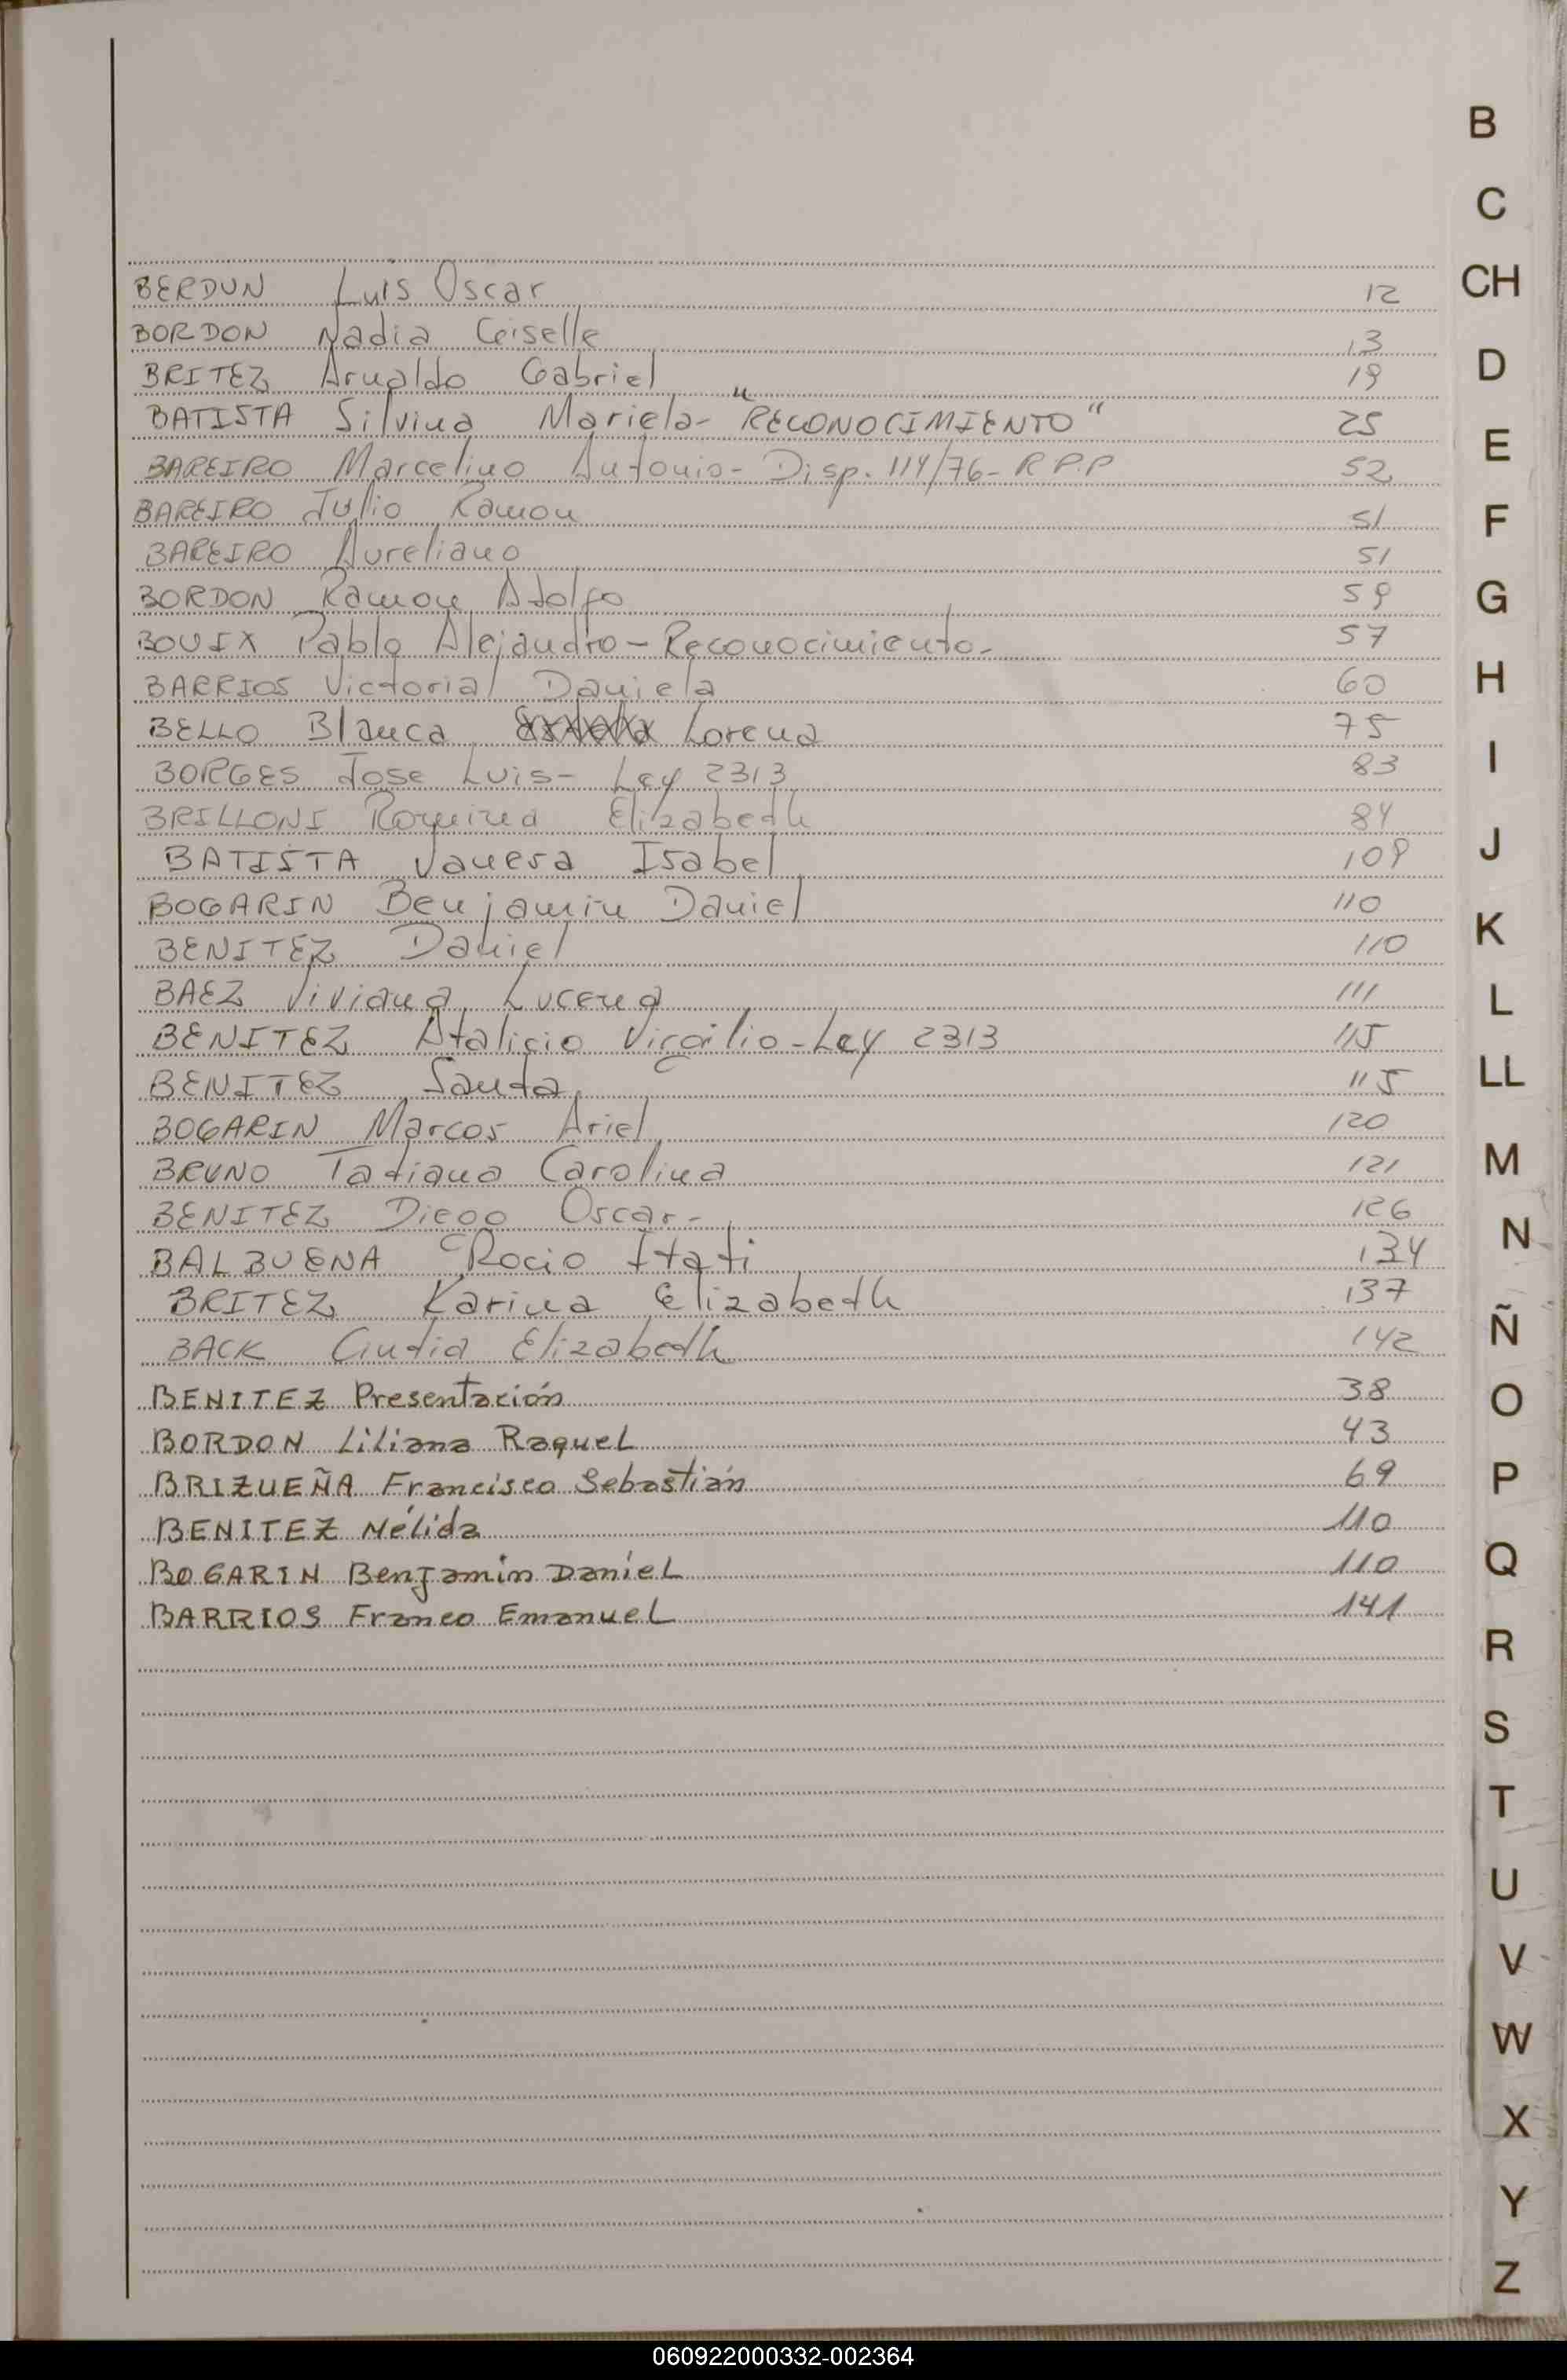 BERDUN Luis Oscar 12
BORDON Nadia Geiselle 13
BRITEZ Arnaldo Gabriel 19
BATISTA Silvina Mariela- "RECONOCIMIENTO" 25
BAREIRO Marcelino Antonio- Disp. 114/76- R.P.P 52
BAREIRO Julio Ramon 51
BAREIRO Aureliano 51
BORDON Ramon Adolfo 59
BOUIX Pablo Alejandro- Reconocimiento- 57
BARRIOS Victorial Daniela 60
BELLO Blanca Lorena 75
BORGES Jose Luis- Ley 2313 83
BRILLONI Romina Elizabeth 84
BATISTA Vanesa Isabel 109
BOGARIN Benjamin Daniel 110
BENITEZ Daniel 110
BAEZ Viviana Lucena 111
BENITEZ Atalicio Virgilio- Ley 2313 115
BENITEZ Santa 115
BOGARIN Marcos Ariel 120
BRUNO Tatiana Carolina 121
BENITEZ Diego Oscar- 126
BALBUENA Rocio Itati 134
BRITEZ Karina Elizabeth 137
BACK Cintia Elizabeth 142
BENITEZ Presentación 38
BORDON Liliana Raquel 43
BRIZUEÑA Francisco Sebastián 69
BENITEZ Nélida 110
BOGARIN Benjamin Daniel 110
BARRIOS Franco Emanuel 141
B
C
CH
D
E
F
G
H
I
J
K
L
LL
M
N
Ñ
O
P
Q
R
S
T
U
V
W
X
Y
Z
060922000332-002364